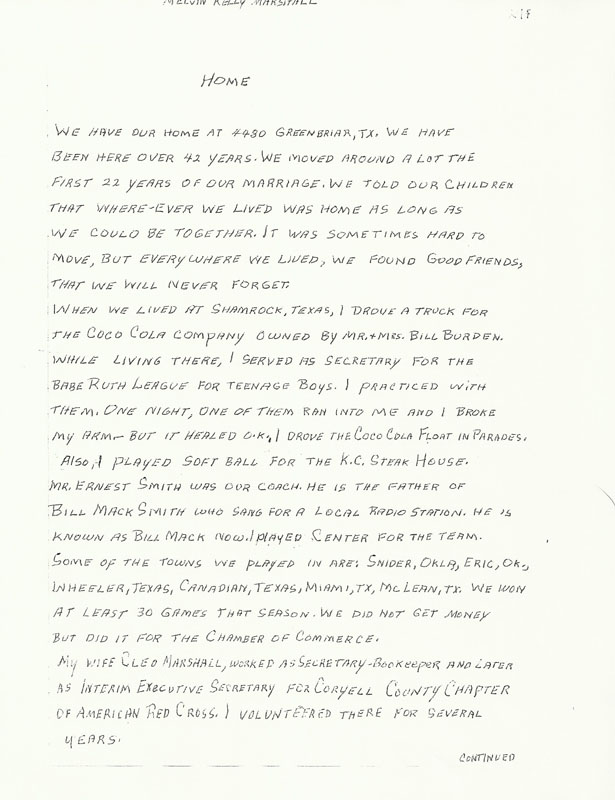 MELVIN KELLY MARSHALL
HOME
WE HAVE OUR HOME AT 4480 GREENBRIAR, TX. WE HAVE
BEEN HERE OVER 42 YEARS. WE MOVED AROUND A LOT THE
FIRST 22 YEARS OF OUR MARRIAGE. WE TOLD OUR CHILDREN
THAT WHERE-EVER WE LIVED WAS HOME AS LONG AS
WE COULD BE TOGETHER. IT WAS SOMETIMES HARD TO
MOVE, BUT EVERYWHERE WE LIVED, WE FOUND GOOD FRIENDS,
THAT WE WILL NEVER FORGET.
WHEN WE LIVED AT SHAMROCK, TEXAS, I DROVE A TRUCK FOR
THE COCO COLA COMPANY OWNED BY MR. + MRS. BILL BURDEN.
WHILE LIVING THERE, I SERVED AS SECRETARY FOR THE
BABE RUTH LEAGUE FOR TEENAGE BOYS. I PRACTICED WITH
THEM. ONE NIGHT, ONE OF THEM RAN INTO ME AND I BROKE
MY ARM - BUT IT HEALED O.K., I DROVE THE COCO COLA FLOAT IN PARADES.
ALSO, I PLAYED SOFT BALL FOR THE K.C. STEAK HOUSE.
MR. ERNEST SMITH WAS OUR COACH. HE IS THE FATHER OF
BILL MACK SMITH WHO SANG FOR A LOCAL RADIO STATION. HE IS
KNOWN AS BILL MACK NOW. I PLAYED CENTER FOR THE TEAM.
SOME OF THE TOWNS WE PLAYED IN ARE: SNIDER, OKLA, ERIC, OK.,
WHEELER, TEXAS, CANADIAN, TEXAS, MIAMI, TX, MC LEAN, TX. WE WON
AT LEAST 30 GAMES THAT SEASON. WE DID NOT GET MONEY
BUT DID IT FOR THE CHAMBER OF COMMERCE.
MY WIFE CLEO MARSHALL, WORKED AS SECRETARY-BOOKKEEPER AND LATER
AS INTERIM EXECUTIVE SECRETARY FOR CORYELL COUNTY CHAPTER
OF AMERICAN RED CROSS. I VOLUNTEERED THERE FOR SEVERAL
YEARS.
CONTINUED